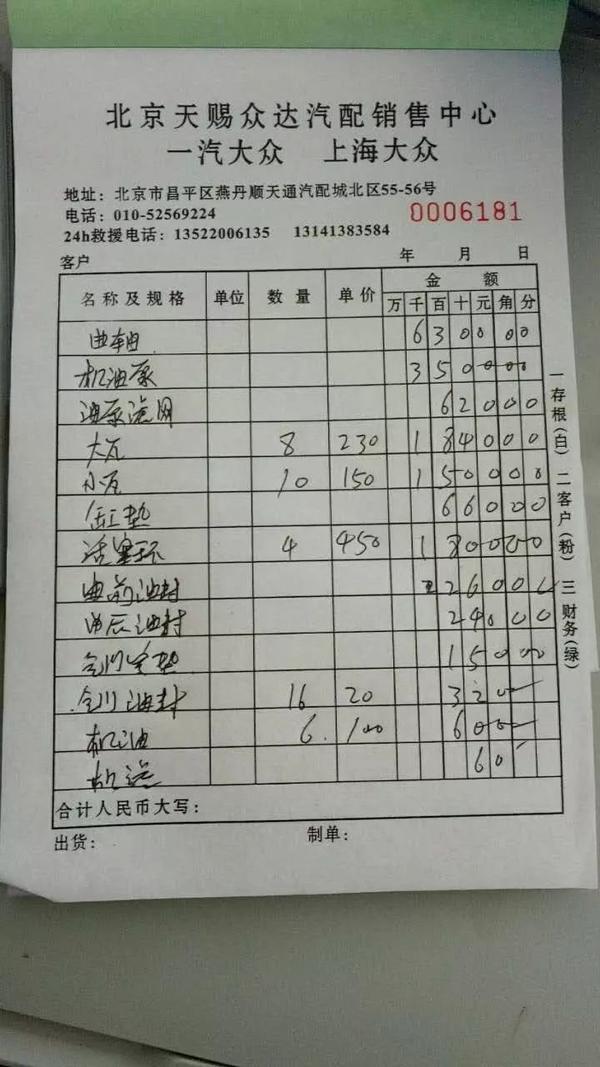 北京天赐众达汽配销售中心
一汽大众 上海大众
地址：北京市昌平区燕丹顺天通汽配城北区55-56号
电话：010-52569224 0006181
24h救援电话：13522006135 13141383584
客户 年 月 日
名称及规格 单位 数量 单价 金额
万 千 百 十 元 角 分
曲轴 630000
机油泵 350000
油泵滤网 62000
大瓦 8 230 184000
小瓦 10 150 150000
缸垫 66000
活塞环 4 450 180000
曲前油封 2600
油封 24000
垫 15000
油封 16 20 320
机油 6 100 600
机滤 60
合计人民币大写：
出货： 制单：
一存根(白) 二客户(粉) 三财务(绿)